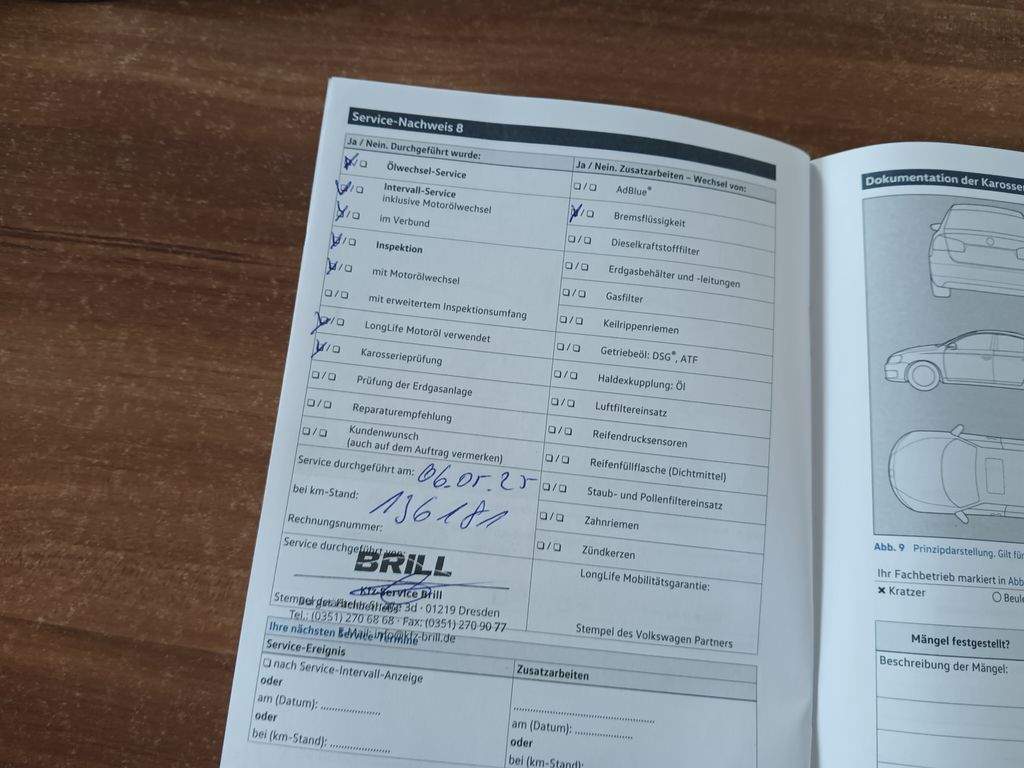 Service-Nachweis 8
Ja / Nein. Durchgeführt wurde:
☒/❏ Ölwechsel-Service
☒/❏ Intervall-Service
inklusive Motorölwechsel
☒/❏ im Verbund
☒/❏ Inspektion
☒/❏ mit Motorölwechsel
❏/❏ mit erweitertem Inspektionsumfang
☒/❏ LongLife Motoröl verwendet
☒/❏ Karosserieprüfung
❏/❏ Prüfung der Erdgasanlage
❏/❏ Reparaturempfehlung
❏/❏ Kundenwunsch
(auch auf dem Auftrag vermerken)
Service durchgeführt am: 06.05.25
bei km-Stand: 136181
Rechnungsnummer:
Service durchgeführt von:
BRILL
Kfz-Service Brill
3d · 01219 Dresden
Stempel des Fachbetriebs
Tel.: (0351) 270 68 68 · Fax: (0351) 270 90 77
E-Mail: info@kfz-brill.de
Ja / Nein. Zusatzarbeiten – Wechsel von:
❏/❏ AdBlue®
☒/❏ Bremsflüssigkeit
❏/❏ Dieselkraftstofffilter
❏/❏ Erdgasbehälter und -leitungen
❏/❏ Gasfilter
❏/❏ Keilrippenriemen
❏/❏ Getriebeöl: DSG®, ATF
❏/❏ Haldexkupplung: Öl
❏/❏ Luftfiltereinsatz
❏/❏ Reifendrucksensoren
❏/❏ Reifenfüllflasche (Dichtmittel)
❏/❏ Staub- und Pollenfiltereinsatz
❏/❏ Zahnriemen
❏/❏ Zündkerzen
LongLife Mobilitätsgarantie:
Stempel des Volkswagen Partners
Ihre nächsten Service-Termine
Service-Ereignis
❏ nach Service-Intervall-Anzeige
oder
am (Datum): .....................
oder
bei (km-Stand): .....................
Zusatzarbeiten
..................................................
am (Datum): .....................
oder
bei (km-Stand):
Dokumentation der Karosser
Abb. 9 Prinzipdarstellung. Gilt fü
Ihr Fachbetrieb markiert in Abb
✖ Kratzer ○ Beule
Mängel festgestellt?
Beschreibung der Mängel: